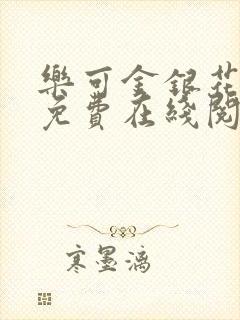 樂可金銀花
免費在綫閱
寒墨漓